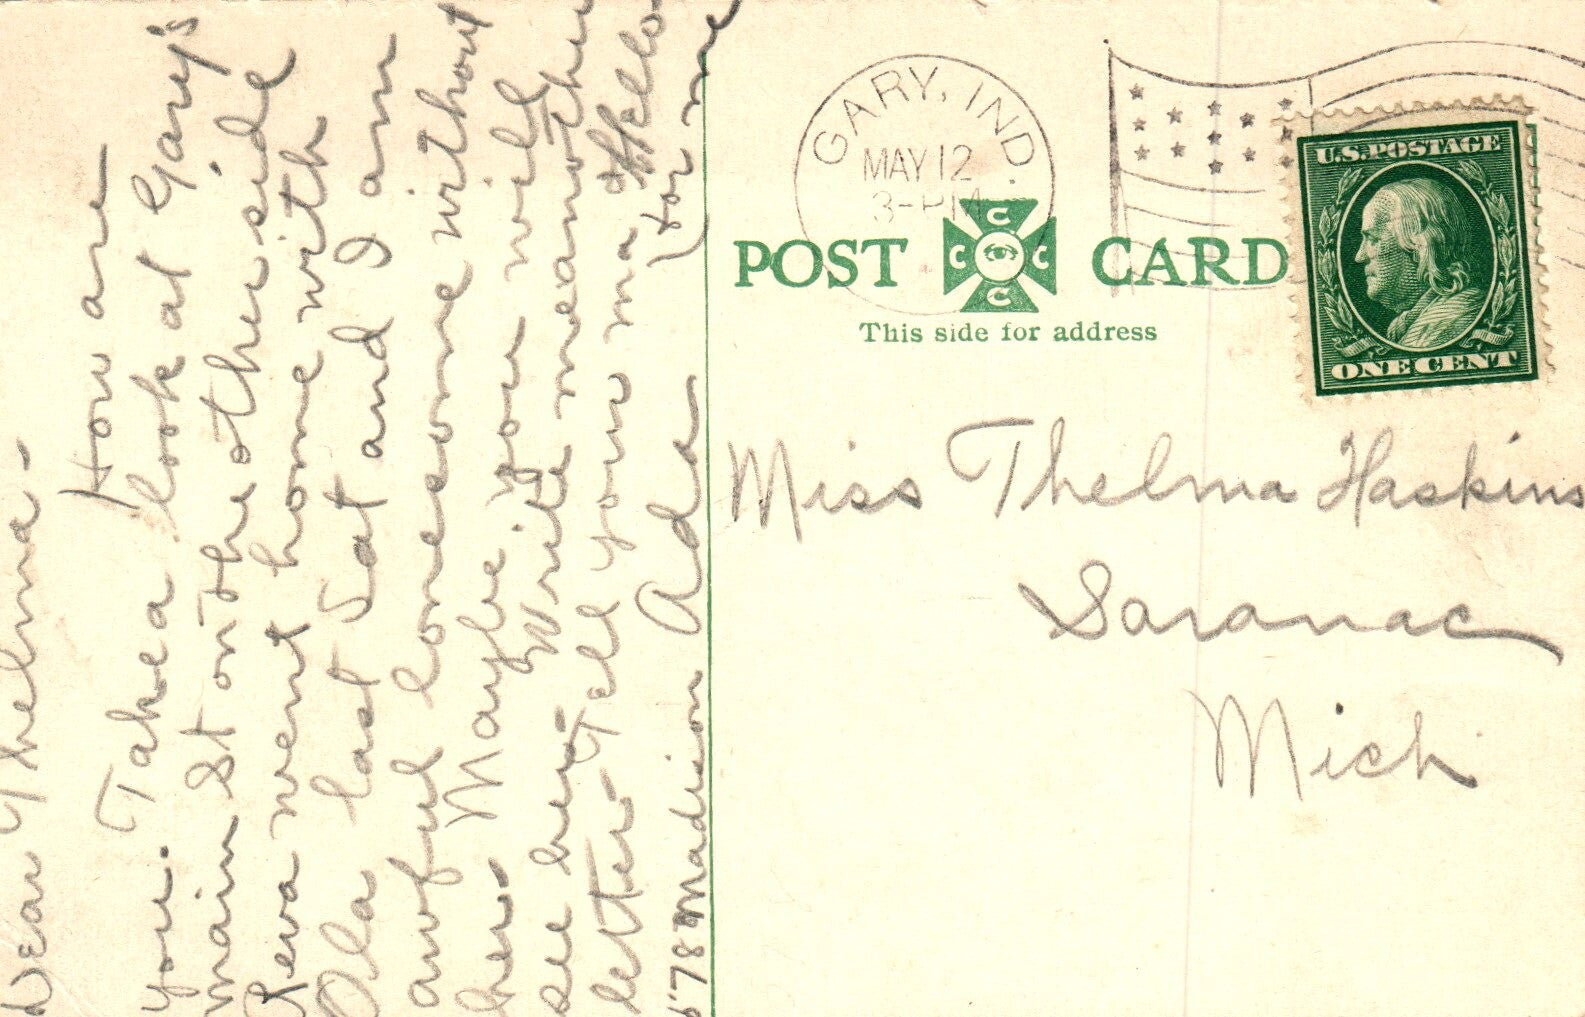 Dear Thelma-
How are
you. Take a look at Gary's
main St on the other side
Reva went home with
Ola last Sat and I am
awful lonesome without
her. Maybe you will
see her. Write me another
letter. Tell your ma Hello
for me
Ada
578 Madison
GARY, IND.
MAY 12
3-PM
POST CARD
C C C C
This side for address
U.S. POSTAGE
ONE CENT
Miss Thelma Haskins
Saranac
Mich